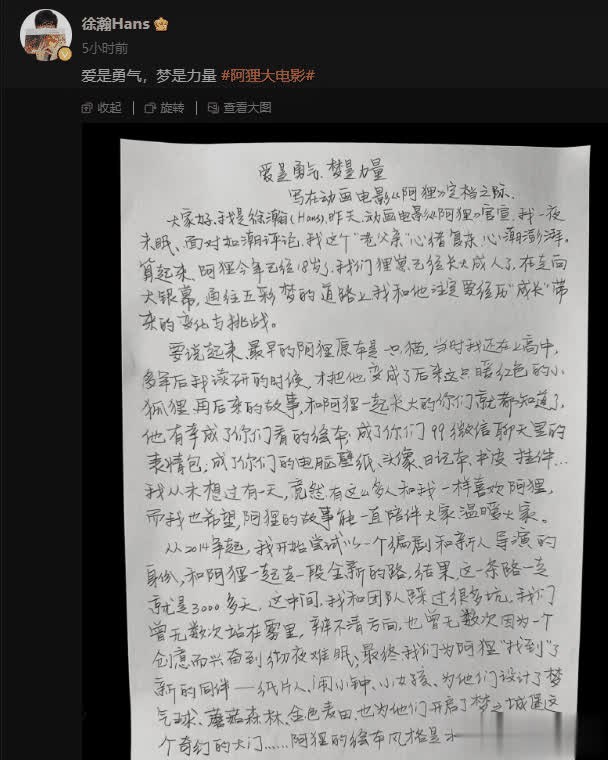 徐瀚Hans
5小时前
爱是勇气，梦是力量 #阿狸大电影#
收起 | 旋转 | 查看大图
爱是勇气、梦是力量
写在动画电影《阿狸》定档之际
大家好,我是徐瀚(Hans),昨天,动画电影《阿狸》官宣,我一夜
未眠、面对如潮评论,我这个“老父亲”心绪复杂,心潮澎湃。
算起来,阿狸今年已经18岁了,我们狸崽已经长大成人了,在走向
大银幕,通往五彩梦的道路上,我和他注定要经历“成长”带
来的变化与挑战。
要说起来,最早的阿狸原本是一只猫,当时我还在上高中,
多年后我读研的时候,才把他变成了后来这只暖红色的小
狐狸,再后来的故事,和阿狸一起长大的你们就都知道了,
他有幸成了你们看的绘本,成了你们QQ微信聊天里的
表情包,成了你们的电脑壁纸、头像、日记本、书皮、挂件…
我从未想过有一天,竟然有这么多人和我一样喜欢阿狸,
而我也希望,阿狸的故事能一直陪伴大家、温暖大家。
从2014年起,我开始尝试以一个编剧和新人导演的
身份,和阿狸一起走一段全新的路,结果,这一条路一走
就是3000多天,这中间,我和团队踩过很多坑,我们
曾无数次站在雾里,辨不清方向,也曾无数次因为一个
创意而兴奋到彻夜难眠,最终我们为阿狸“找到”了
新的同伴——纸片人、闹小钟、小女孩、为他们设计了梦
气球、蘑菇森林、金色麦田,也为他们开启了梦之城堡这
个奇幻的大门……阿狸的绘本风格是水